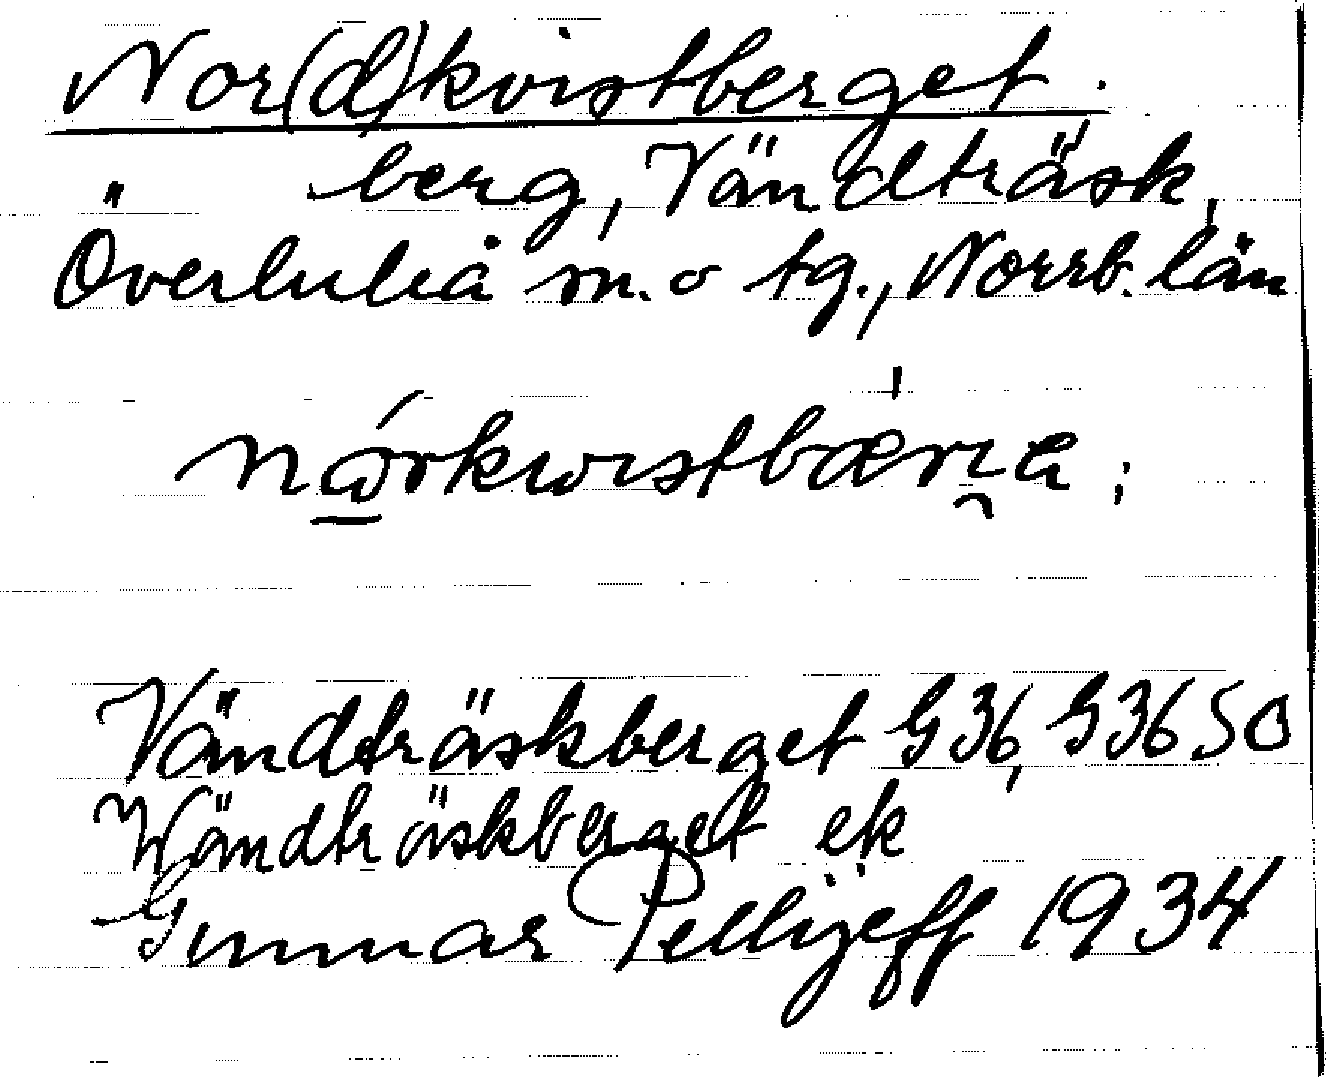 Nor(d)kvistberget.
berg, Vändträsk,
Överluleå sn. o tg., Norrb. län
Vändträskberget G36, G36 SO
Wändträskberget ek
Gunnar Pellijeff 1934